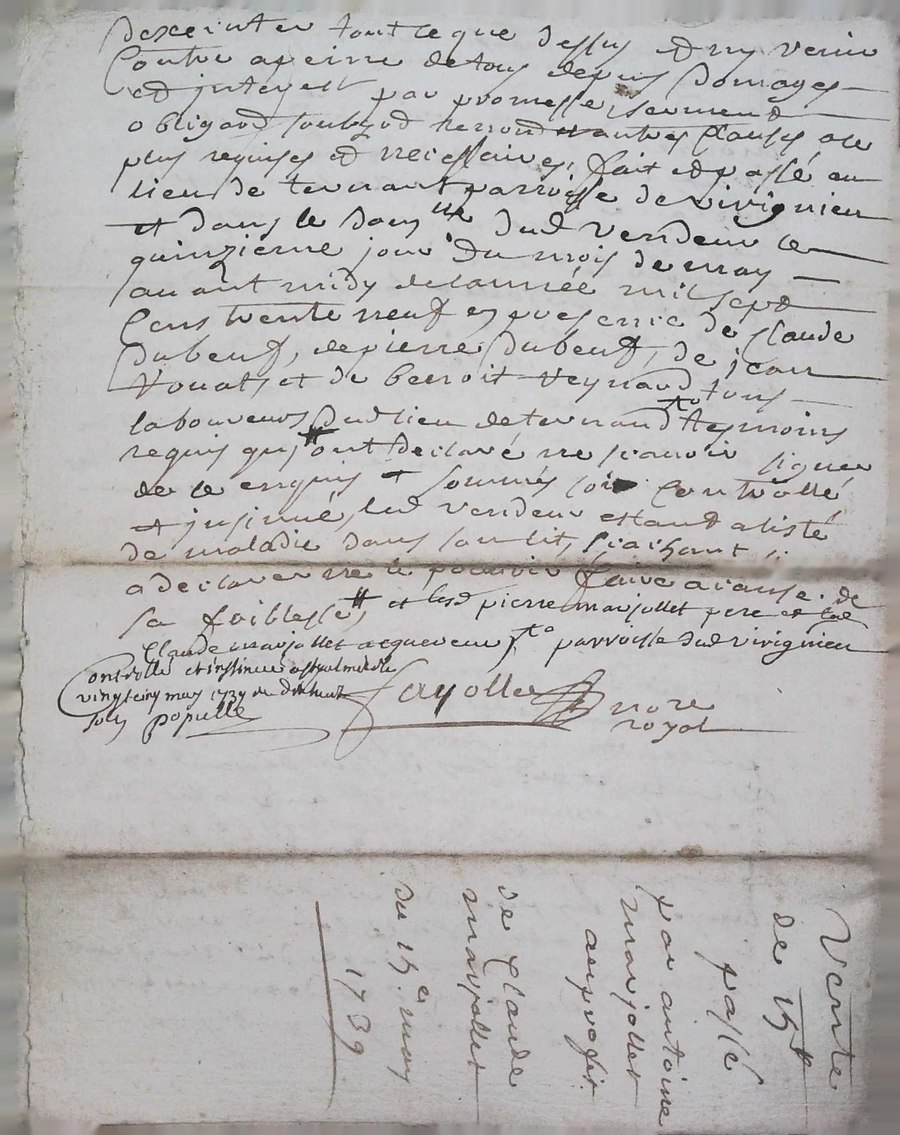 dexecuter tout ce que dessus et ny venir
Contre apeinne de tous depens domages
et interest par promesse, serment
obligaõn soubzõn renonõn et autres Clauses, ou
plus requises et necessaires, fait et passé au
lieu de ternant parroisse de virignieu
et dans le dom.lle dud vendeur le
quinzieme jour du mois de may
avant midy de lannée mil sept
Cens trente neuf en presence de Claude
dubeuf, de pierre dubeuf, de jean
et de benoit veynand tous
laboureurs dud lieu de ternand tesmoins
requis quj ont declaré ne scavoir signer
de ce enquis et sommés soit Controllé
et jnsinué, led vendeur estand alisté
de maladie dans son lit, scachant
a declarer ne le pouvoir faire a cause de
sa foiblesse, et lesd pierre marjollet pere et
Claude marjollet acquereur parroisse dud virignieu
Controllé et insinué a
vingt may 1739
sols populle
fayolle nore
royal
Vente
de 15
passé
par antoine
marjollet
au proffit
de Claude
marjollet
du 15e may
1739